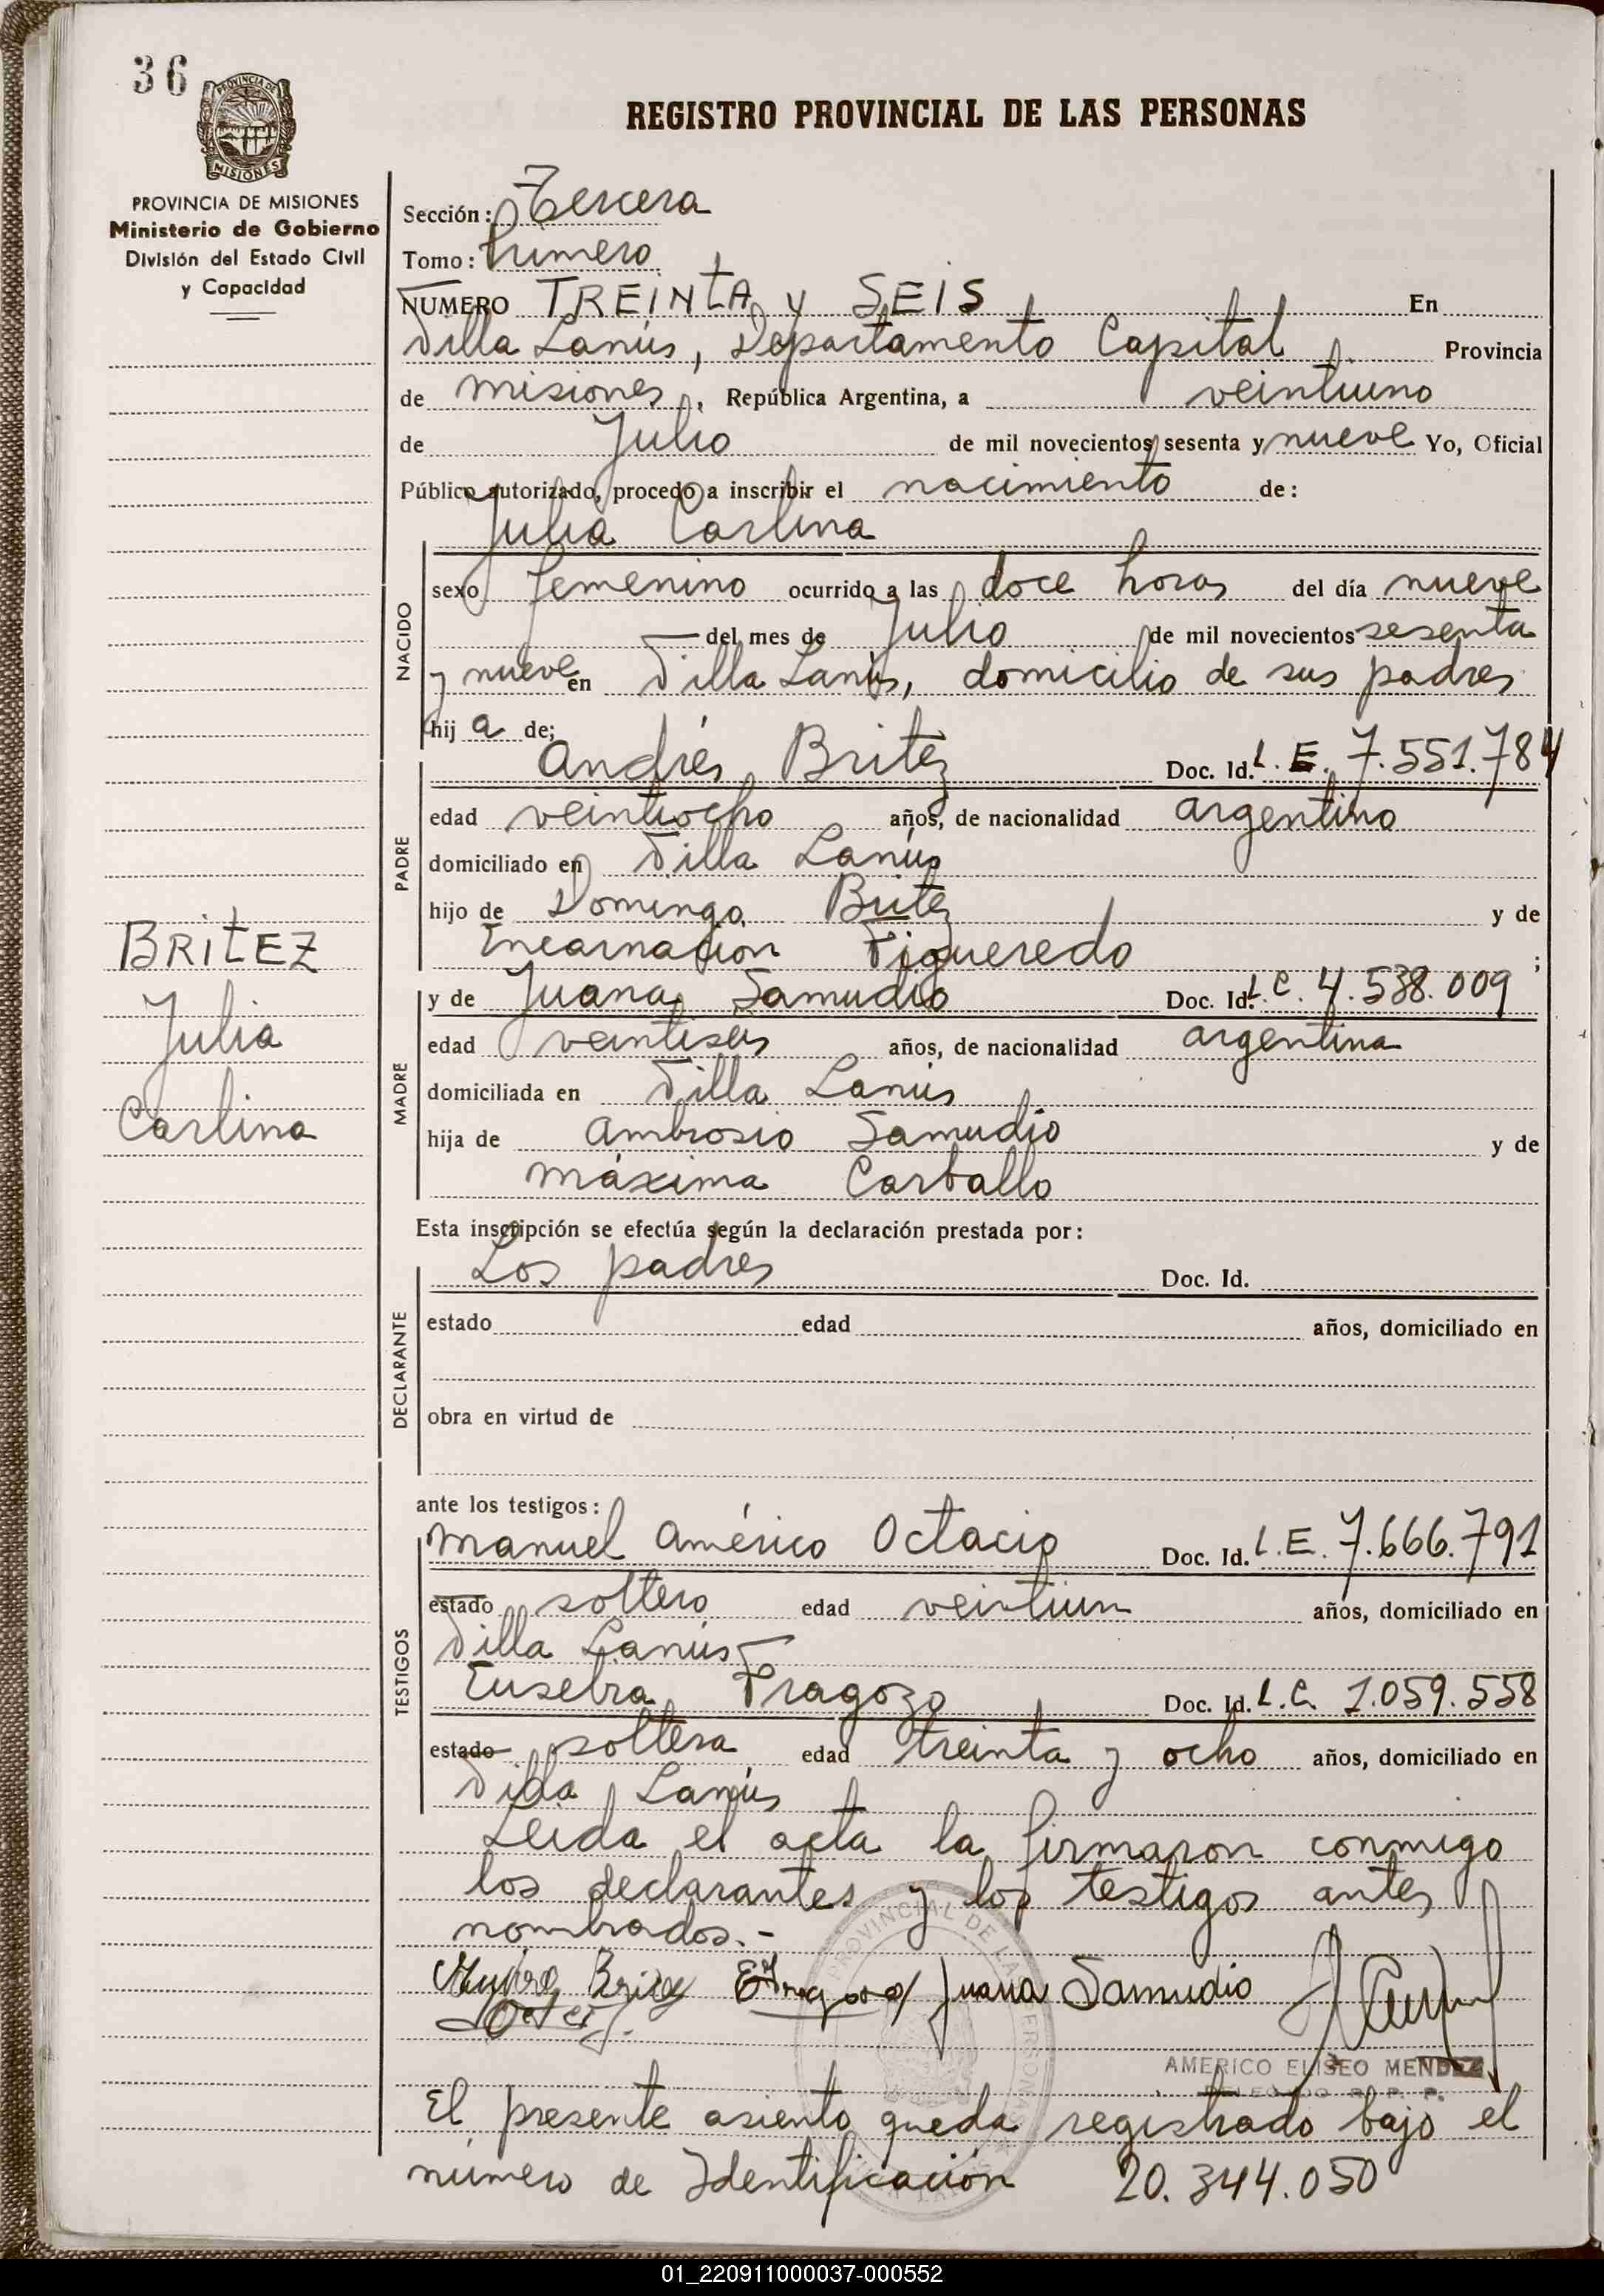 36
PROVINCIA DE
MISIONES
REGISTRO PROVINCIAL DE LAS PERSONAS
PROVINCIA DE MISIONES
Ministerio de Gobierno
División del Estado Civil
y Capacidad
Sección: Tercera
Tomo: Primero
NUMERO TREINTA y SEIS En
Villa Lanús, Departamento Capital Provincia
de Misiones, República Argentina, a veintiuno
de Julio de mil novecientos sesenta y nueve Yo, Oficial
Público autorizado, procedo a inscribir el nacimiento de:
Julia Carlina
NACIDO
sexo femenino ocurrido a las doce horas del día nueve
del mes de Julio de mil novecientos sesenta
y nueve en Villa Lanús, domicilio de sus padres
hij a de;
PADRE
Andrés Britez Doc. Id. L. E. 7.551.784
edad veintiocho años, de nacionalidad argentino
domiciliado en Villa Lanús
hijo de Domingo Britez y de
Encarnación Figueredo ;
BRITEZ
Julia
Carlina
MADRE
y de Juana Samudio Doc. Id. L.C. 4.538.009
edad veintiseis años, de nacionalidad argentina
domiciliada en Villa Lanús
hija de Ambrosio Samudio y de
Máxima Carballo
Esta inscripción se efectúa según la declaración prestada por:
DECLARANTE
Los padres Doc. Id.
estado edad años, domiciliado en
obra en virtud de
ante los testigos:
TESTIGOS
Manuel Américo Octacio Doc. Id. L.E. 7.666.791
estado soltero edad veintiun años, domiciliado en
Villa Lanús
Eusebia Fragozo Doc. Id. L.C. 1.059.558
estado soltera edad treinta y ocho años, domiciliado en
Villa Lanús
Leida el acta la firmaron conmigo
los declarantes y los testigos antes
nombrados.-
Britez EFragozo Juana Samudio
AMERICO ELISEO MENDEZ
DELEGADO R. P. P.
PROVINCIAL DE LAS PERSONAS
El presente asiento queda registrado bajo el
número de Identificación 20.344.050
01_220911000037-000552